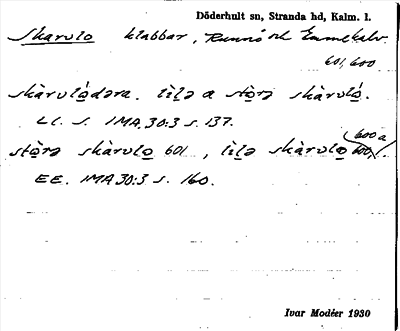 Döderhult sn, Stranda hd, Kalm. l.
Skarvlo klabbar, Runnö och Emmekalv.
601, 600
skàrvlódəra. lìlə a stòrə skàrvló.
LL. S. IMA 30:3 s. 137.
stòrə skàrvlo 601, lìlə skàrvlo 600.
600a
EE. IMA 30:3 s. 160.
Ivar Modéer 1930